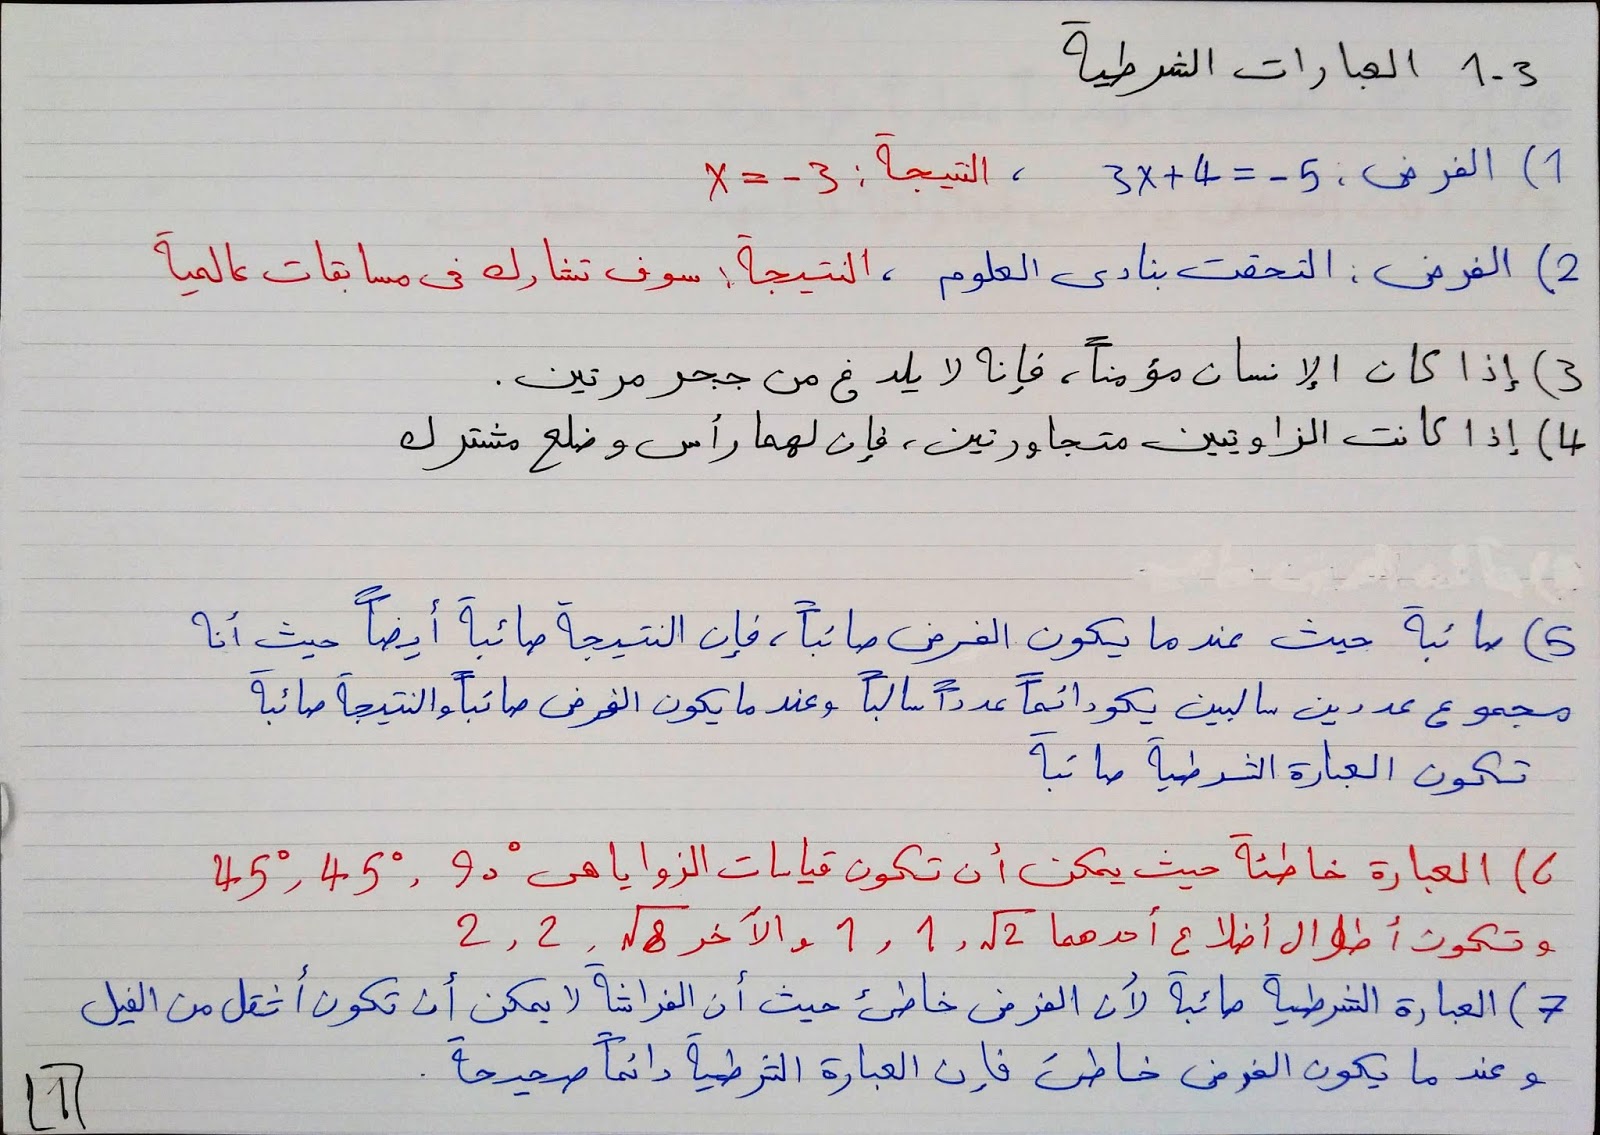 1-3 العبارات الشرطية
1) الفرض: 3x+4=-5 ، النتيجة: x=-3
2) الفرض: التحقت بنادى العلوم ، النتيجة: سوف تشارك فى مسابقات عالمية
3) إذا كان الإنسان مؤمناً، فإنه لا يلدغ من جحر مرتين.
4) إذا كانت الزاويتين متجاورتين، فإن لهما رأس وضلع مشترك
5) صائبة حيث عندما يكون الفرض صائباً، فإن النتيجة صائبة أيضاً حيث أنه
مجموع عددين سالبين يكو دائماً عدداً سالباً وعندما يكون الفرض صائباً والنتيجة صائبة
تكون العبارة الشرطية صائبة
6) العبارة خاطئة حيث يمكن أن تكون قياسات الزوايا هى 90° , 45° , 45°
وتكون أطوال أضلاع أحدهما √2 , 1 , 1 والآخر √8 , 2 , 2
7) العبارة الشرطية صائبة لأن الفرض خاطئ حيث أن الفراشة لا يمكن أن تكون أثقل من الفيل
وعندما يكون الفرض خاطئ فإن العبارة الشرطية دائماً صحيحة.
1